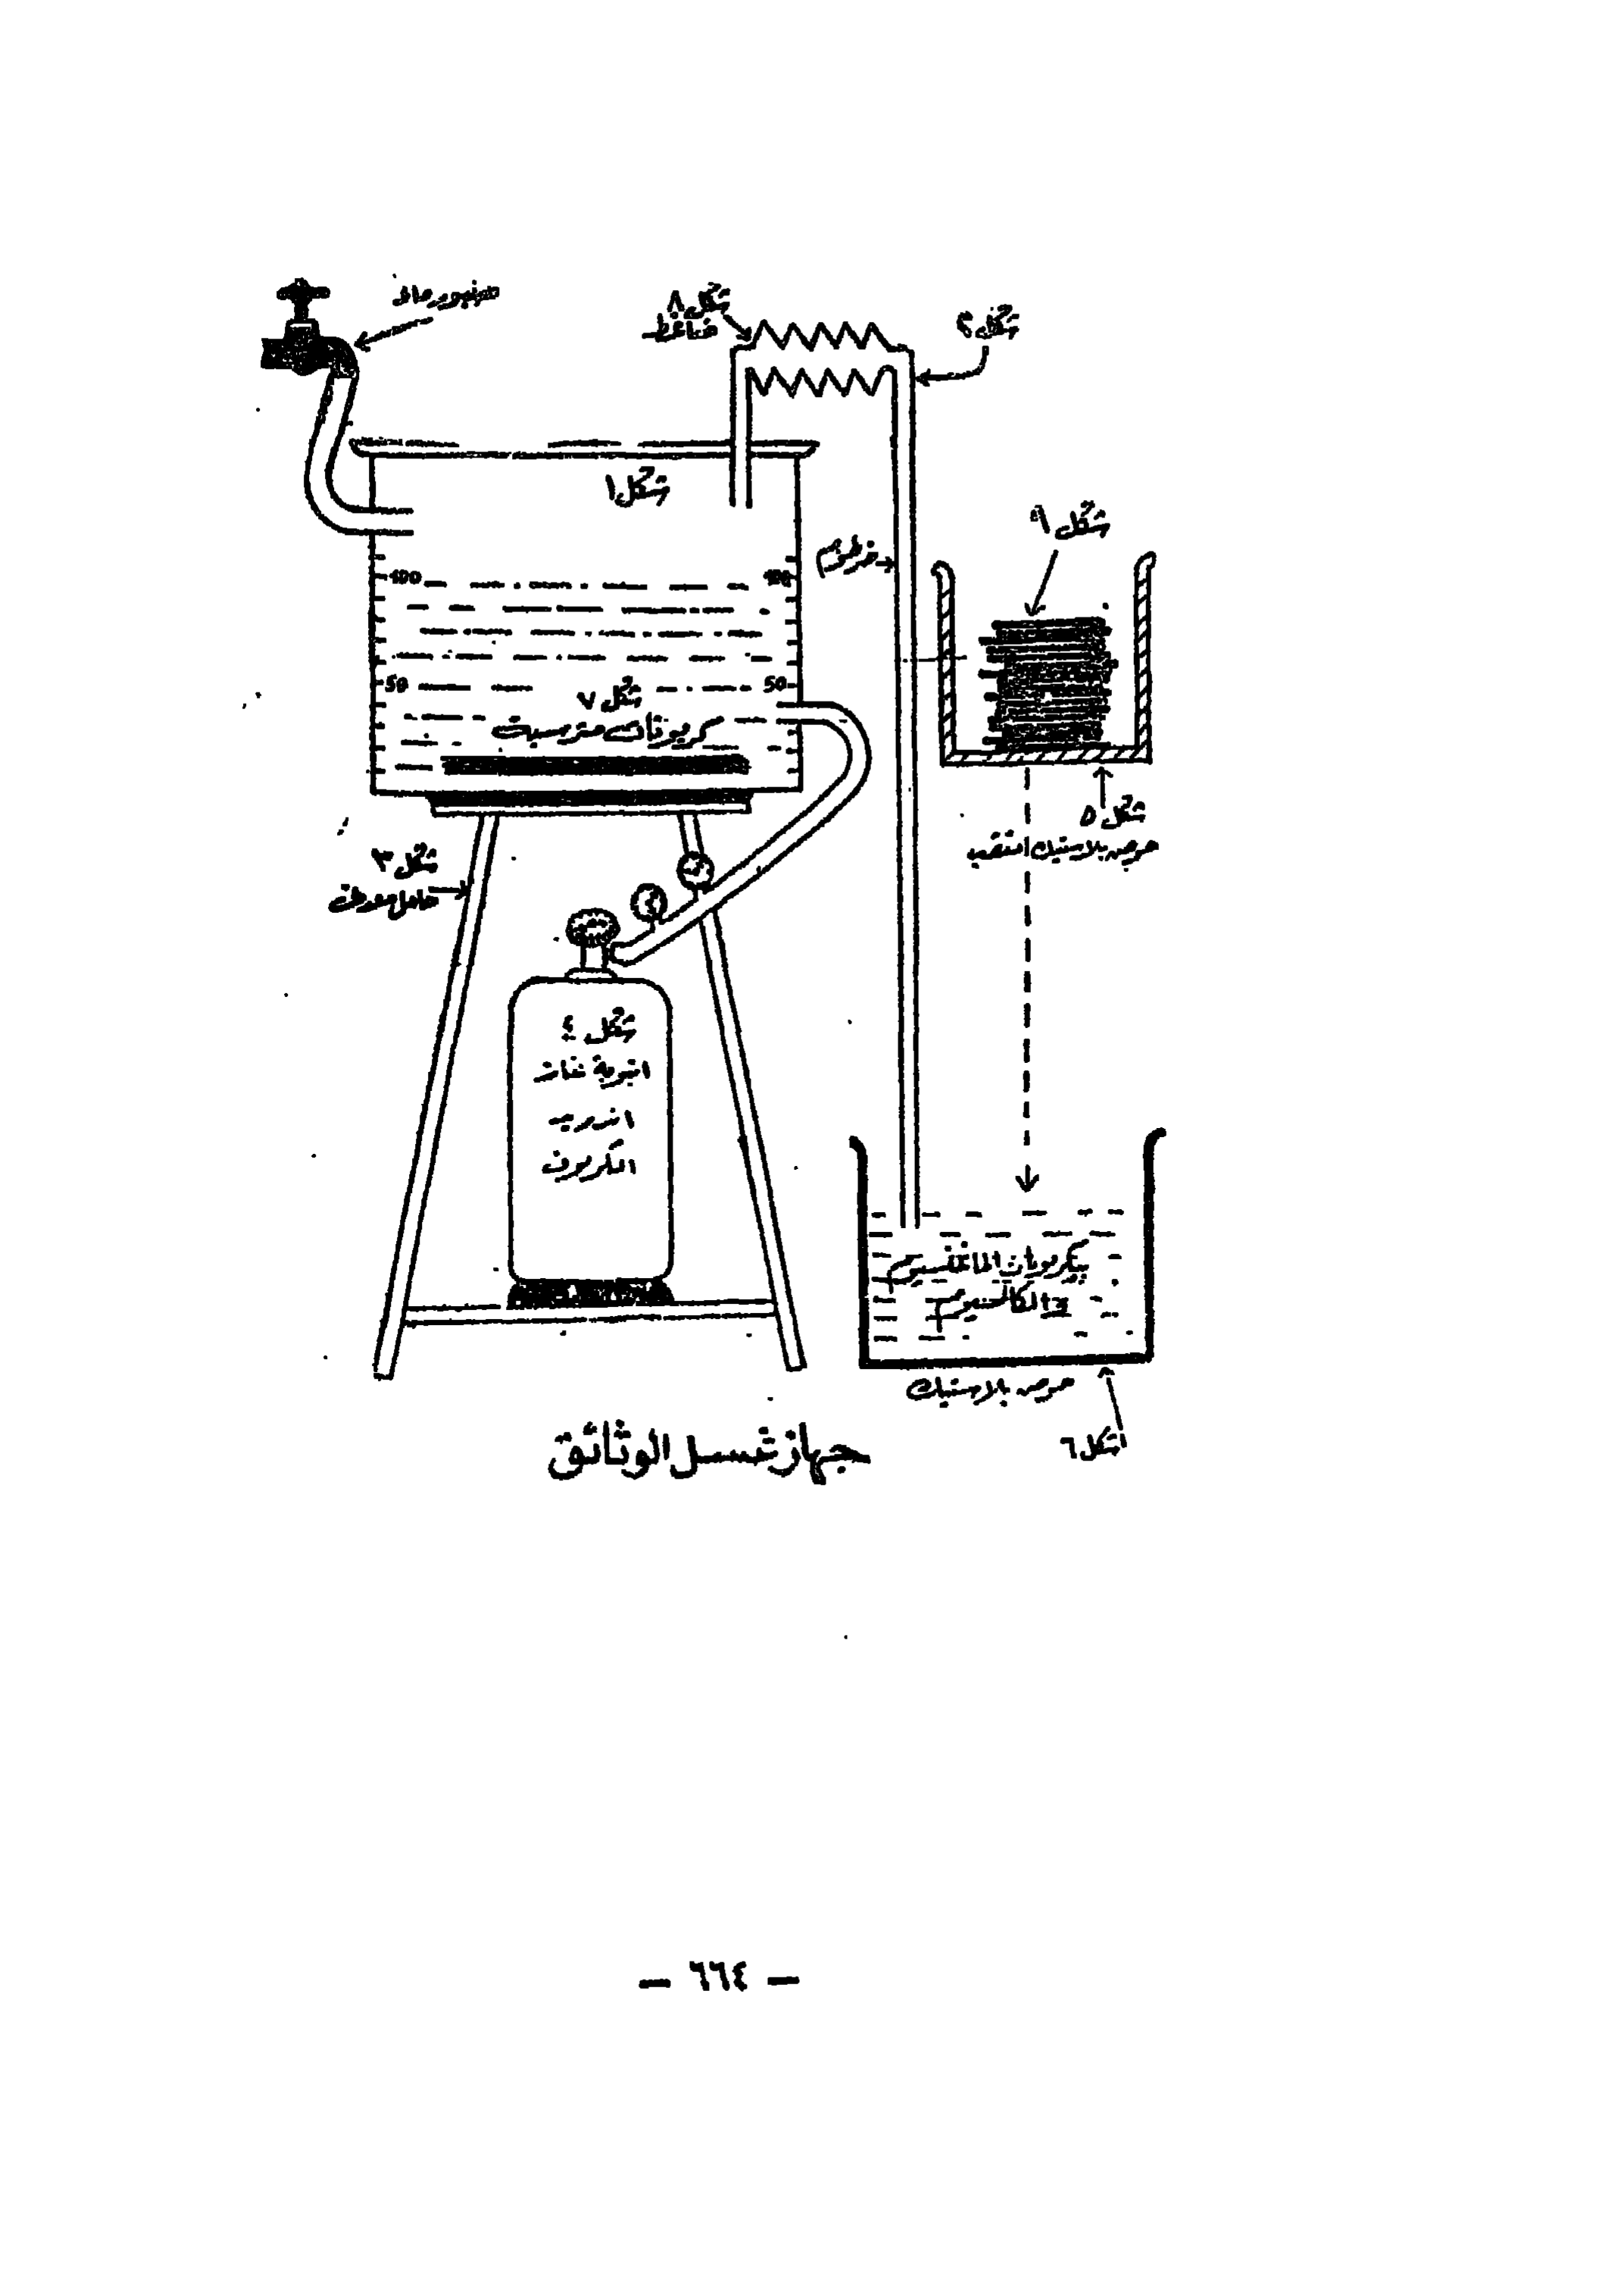 صنبور ماء
شكل ٨
ضاغط
شكل ٢
شكل ١
شكل ٩
خرطوم
100
100
50
50
شكل ٧
كربونات مترسبت
شكل ٥
حوض بلاستيك مثقب
شكل ٣
حامل معدنى
شكل ٤
انبوبة غاز
الكربون
بيكربونات الماغنسيوم
والكالسيوم
حوض بلاستيك
شكل ٦
جهاز غسل الوثائق
— ٦٦٤ —